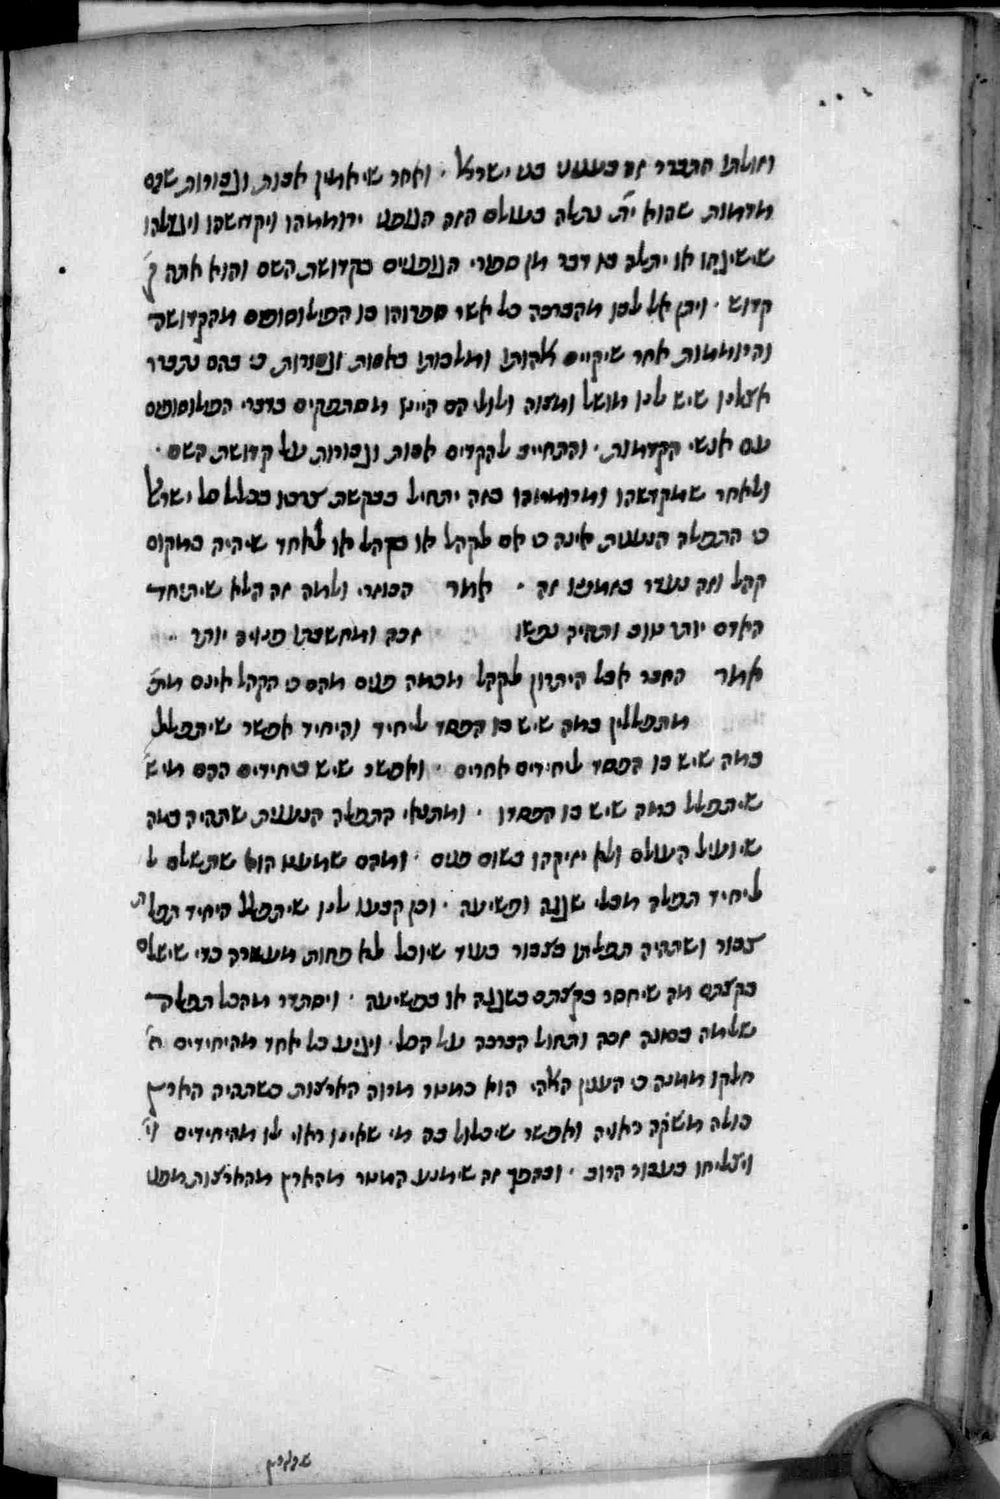 וזולתו התברר זה בענינו בני ישראל · ואחר שיאמין אבות וגבורות שהם
מדמות שהוא ית׳ נתלה בעולם הזה הגופני ירוממהו ויקדשהו ויעלהו
שישיגהו או יתלה בו דבר מן ספורי הגופניים בקדושת השם והוא אתה ק׳
קדוש · ויבן אל לבו מהברכה כל אשר ספרוהו בו הפילוסופים מהקדושה
והרוממות אחר שיקיים אלהותו ומלכותו באבות וגבורות כי בהם נתברר
אצלינו שיש לנו מושל ומצוה ולולי הם היינו מסתפקים בדברי הפילוסופים
עם אנשי הקדמות · והתחייב להקדים אבות וגבורות על קדושת השם ·
ולאחר שמקדשהו ומרוממהו בזה יתחיל בבקשת צרכו בכלל כל ישראל
כי התפלה הנענית אינה כי אם לקהל או בקהל או לאחד שיהיה במקום
קהל וזה נעדר בזמנינו זה · אמר הכוזרי ולמה זה הלא שיתיחד
האדם יותר טוב ותהיה נפשו זכה ומחשבתו פנויה יותר ··
אמר החבר אבל היתרון לקהל מכמה פנים מהם כי הקהל אינם מת׳
מתפללין במה שיש בו הפסד ליחיד והיחיד אפשר שיתפלל
במה שיש בו הפסד ליחידים אחרים · ואפשר שיש ביחידים ההם מי ש׳
שיתפלל במה שיש בו הפסדו · ומתנאי התפלה הנענית שתהיה במה
שיועיל העולם ולא יזיקהו בשום פנים · ומהם שמעט הוא שתשלם ל
ליחיד תפלה מבלי שגגה ופשיעה · וכן קבעו לנו שיתפלל היחיד תפלת
צבור ושתהיה תפלתו בצבור בעוד שיוכל לא פחות מעשרה כדי שישלם
בקצתם מה שיחסר בקצתם בשגגה או בפשיעה · ויסתדר מהכל תפלה
שלמה בכונה זכה ותחול הברכה על הכל · ויגיע כל אחד מהיחידים ח׳
חלקו ממנה כי הענין האלהי הוא כמטר מרוה הארצות כשתהיה הארץ
כולה משקה ראויה ואפשר שיכלול בה מי שאינו ראוי לו מהיחידים וי׳
ויצליחו בעבור הרוב · ובהפך זה שימנע המטר מהארץ מהארצות מפני